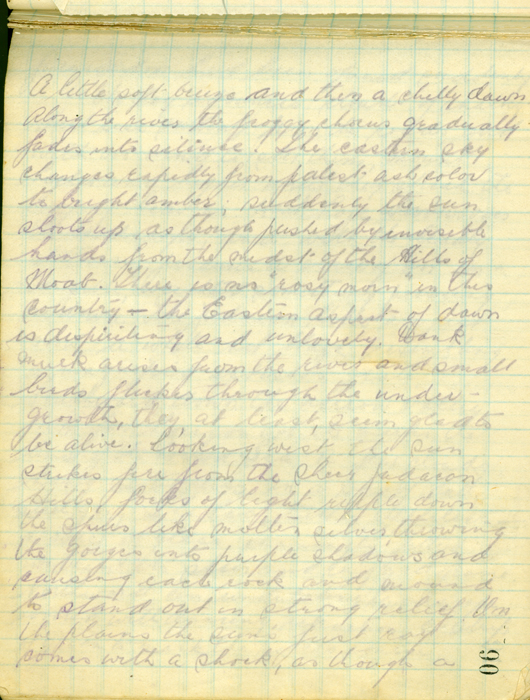 A little soft and then a chilly dawn
Along the river the froggy chorus gradually
fades into silence. The eastern sky
changes rapidly from palest ash color
to bright amber; suddenly the sun
shoots up, as though pushed by invisible
hands from the midst of the Hills of
Moab. There is no "rosy morn" in this
country – the Eastern aspect of dawn
is dispiriting and unlovely. Dank
murk arises from the river and small
birds through the under-
growth, they, at least, seem glad to
be alive. Looking west the sun
strikes fire from the sheer Judaean
Hills, of light ripple down
the like molten silver, throwing
the gorges into purple shadows and
causing each rock and mound
to stand out in strong relief. On
the plains the sun's first ray
comes with a shock, as though a
90